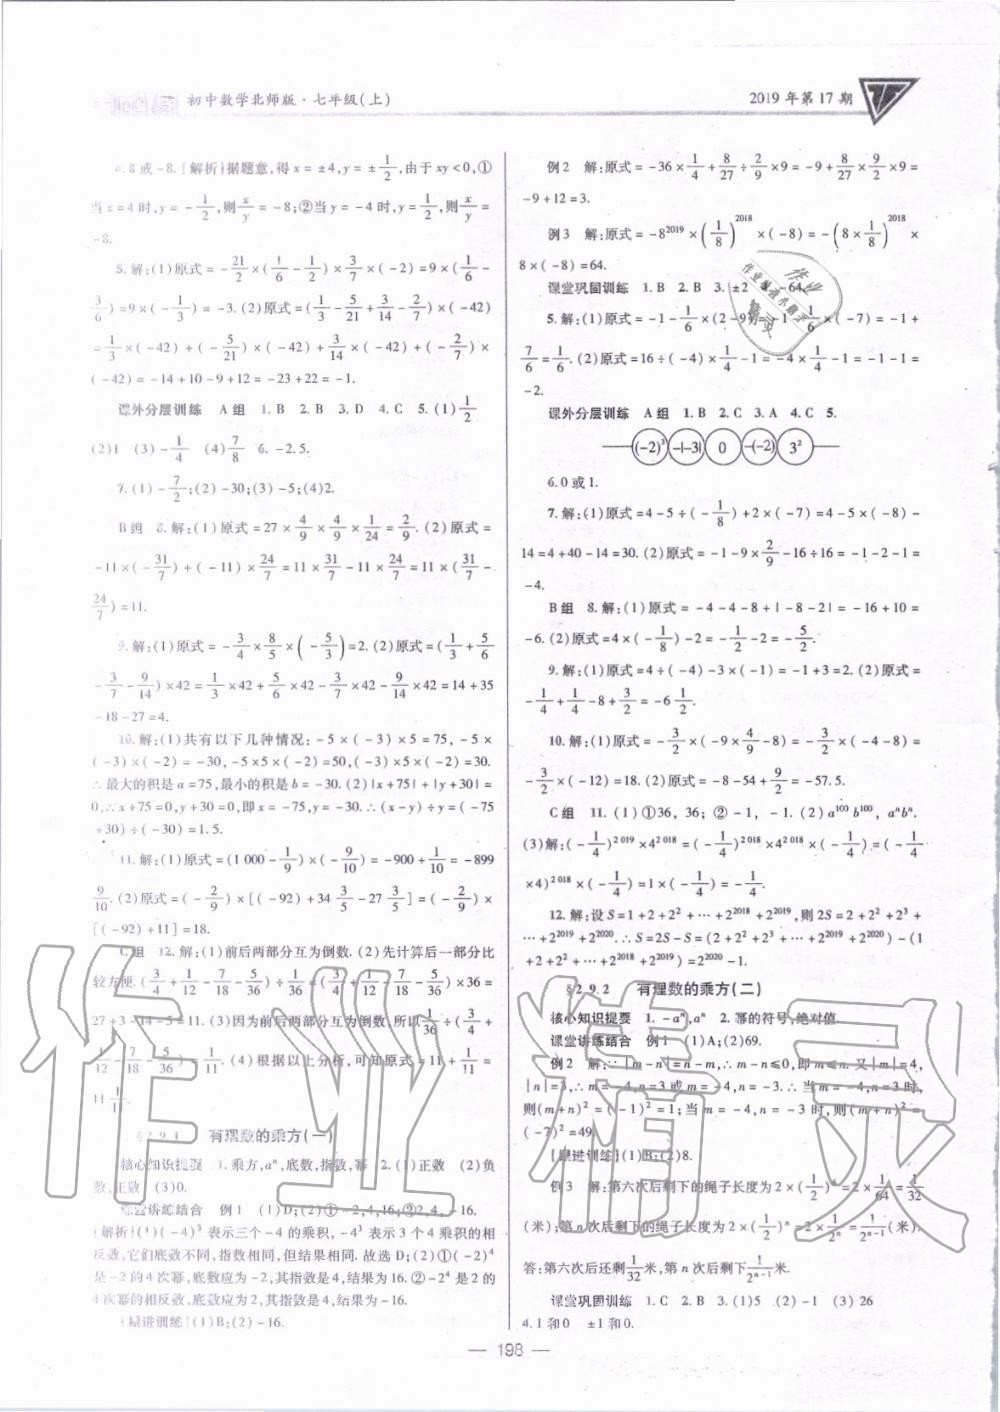 初中数学北师版·七年级(上)
2019年第17期
8或-8.[解析]据题意,得x=±4,y=±1/2,由于xy<0,①
当x=4时,y=-1/2,则x/y=-8;②当y=-4时,y=1/2,则x/y=
-8.
5.解:(1)原式=-21/2×(1/6-1/2)×3/7×(-2)=9×(1/6-
3/6)=9×(-1/3)=-3.(2)原式=(1/3-5/21+3/14-2/7)×(-42)
=1/3×(-42)+(-5/21)×(-42)+3/14×(-42)+(-2/7)×
(-42)=-14+10-9+12=-23+22=-1.
课外分层训练 A组 1.B 2.B 3.D 4.C 5.(1)1/2
(2)1 (3)-1/4 (4)7/8 6.-2.5.
7.(1)-7/2;(2)-30;(3)-5;(4)2.
B组 8.解:(1)原式=27×4/9×4/9×1/24=2/9.(2)原式=
-11×(-31/7)+(-11)×24/7=11×31/7-11×24/7=11×(31/7-
24/7)=11.
9.解:(1)原式=-3/4×8/5×(-5/3)=2.(2)原式=(1/3+5/6
-3/7-9/14)×42=1/3×42+5/6×42-3/7×42-9/14×42=14+35
-18-27=4.
10.解:(1)共有以下几种情况:-5×(-3)×5=75,-5×
(-3)×(-2)=-30,-5×5×(-2)=50,(-3)×5×(-2)=30.
∴最大的积是a=75,最小的积是b=-30.(2)|x+75|+|y+30|=
0,∴x+75=0,y+30=0,即x=-75,y=-30.∴(x-y)÷y=(-75
+30)÷(-30)=1.5.
11.解:(1)原式=(1 000-1/9)×(-9/10)=-900+1/10=-899
9/10.(2)原式=(-2/9)×[(-92)+34 3/5-27 3/5]=(-2/9)×
[(-92)+11]=18.
C组 12.解:(1)前后两部分互为倒数.(2)先计算后一部分比
较方便.(3/4+1/12-7/18-5/36)÷1/36=(3/4+1/12-7/18-5/36)×36=
27+3-14-5=11.(3)因为前后两部分互为倒数,所以1/36÷(3/4+
1/12-7/18-5/36)=1/11.(4)根据以上分析,可知原式=11+1/11=
11 1/11.
§2.9.1 有理数的乘方(一)
核心知识提要 1.乘方,aⁿ,底数,指数,幂 2.(1)正数 (2)负
数,正数 (3)0.
课堂讲练结合 例1 (1)D;(2)①-2,4,16;②2,4,-16.
[解析](1)(-4)³表示三个-4的乘积,-4³表示3个4乘积的相
反数,它们底数不同,指数相同,但结果相同.故选D;(2)①(-2)⁴
是-2的4次幂,底数应为-2,其指数是4,结果为16.②-2⁴是2的
4次幂的相反数,底数应为2,其指数是4,结果为-16.
[跟进训练](1)B;(2)-16.
例2 解:原式=-36×1/4+8/27÷2/9×9=-9+8/27×9/2×9=
-9+12=3.
例3 解:原式=-8²⁰¹⁹×(1/8)²⁰¹⁸×(-8)=-(8×1/8)²⁰¹⁸×
8×(-8)=64.
课堂巩固训练 1.B 2.B 3.±2 4.-64.
5.解:(1)原式=-1-1/6×(2-9)=-1-1/6×(-7)=-1+
7/6=1/6.(2)原式=16÷(-4)×1/4-1=-4×1/4-1=-1-1=
-2.
课外分层训练 A组 1.B 2.C 3.A 4.C 5.
(-2)³ -|-3| 0 -(-2) 3²
6.0或1.
7.解:(1)原式=4-5÷(-1/8)+2×(-7)=4-5×(-8)-
14=4+40-14=30.(2)原式=-1-9×2/9-16÷16=-1-2-1=
-4.
B组 8.解:(1)原式=-4-4-8+|-8-2|=-16+10=
-6.(2)原式=4×(-1/8)-2=-1/2-2=-5/2.
9.解:(1)原式=4÷(-4)-3×(-1)=-1+3=2.(2)原式=
-1/4+1/4-8+3/2=-6 1/2.
10.解:(1)原式=-3/2×(-9×4/9-8)=-3/2×(-4-8)=
-3/2×(-12)=18.(2)原式=-8-54+9/2=-57.5.
C组 11.(1)①36,36;②-1,-1.(2)a¹⁰⁰b¹⁰⁰,aⁿbⁿ.
(3)解:(-1/4)²⁰¹⁹×4²⁰¹⁸=(-1/4)²⁰¹⁸×4²⁰¹⁸×(-1/4)=(-1/4
×4)²⁰¹⁸×(-1/4)=1×(-1/4)=-1/4.
12.解:设S=1+2+2²+…+2²⁰¹⁸+2²⁰¹⁹,则2S=2+2²+2³+
…+2²⁰¹⁹+2²⁰²⁰.∴S=2S-S=(2+2²+2³+…+2²⁰¹⁹+2²⁰²⁰)-(1
+2+2²+…+2²⁰¹⁸+2²⁰¹⁹)=2²⁰²⁰-1.
§2.9.2 有理数的乘方(二)
核心知识提要 1.-aⁿ,aⁿ 2.幂的符号,绝对值.
课堂讲练结合 例1 (1)A;(2)69.
例2 解:∵|m-n|=n-m,∴m-n≤0,即m≤n.又|m|=4,
|n|=3,∴m=-4,n=3或m=-4,n=-3.∴当m=-4,n=3时,
则(m+n)²=(-1)²=1;当m=-4,n=-3时,则(m+n)²=
(-7)²=49.
[跟进训练](1)B;(2)8.
例3 解:第六次后剩下的绳子长度为2×(1/2)⁶=2×1/64=1/32
(米);第n次后剩下的绳子长度为2×(1/2)ⁿ=2×1/2ⁿ=1/2ⁿ⁻¹(米).
答:第六次后还剩1/32米,第n次后剩下1/2ⁿ⁻¹米.
课堂巩固训练 1.C 2.B 3.(1)5 (2)-1 (3)26
4.1和0 ±1和0.
— 198 —
作业精灵